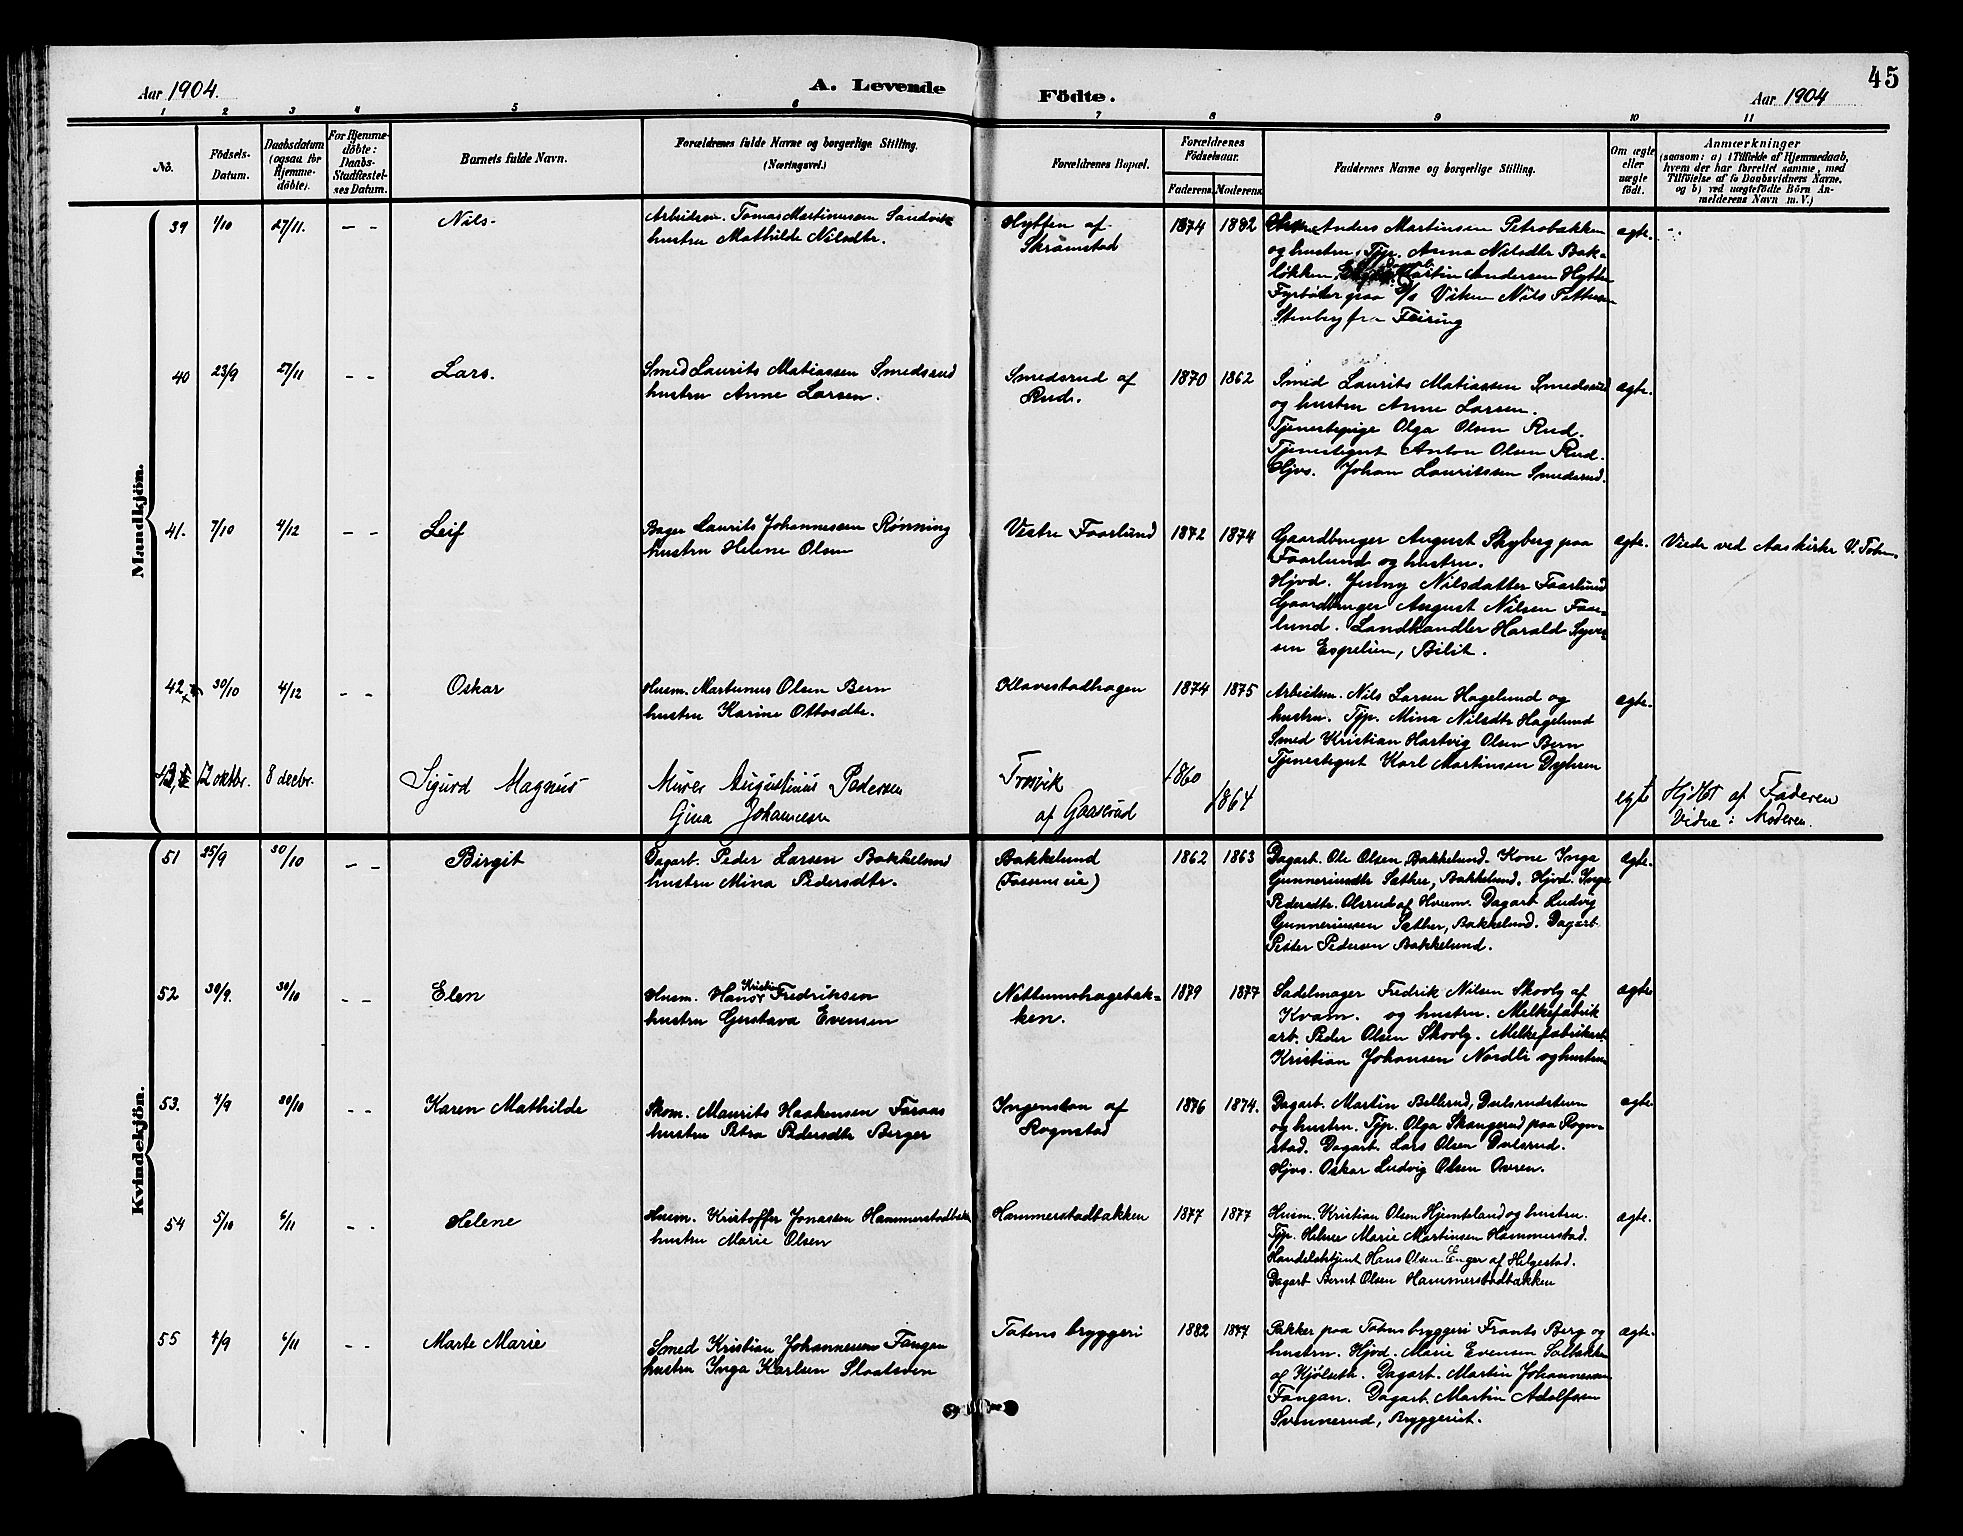 45
Aar 1904.
A. Levende
Födte.
Aar 1904
1 2 3 4 5 6 7 8 9 10 11
No.
Födsels-
Datum.
Daabsdatum
(ogsaa for
Hjemme-
döbte).
For Hjemme-
döbte:
Daabs-
Stadfæstel-
ses Datum.
Barnets fulde Navn.
Forældrenes fulde Navne og borgerlige Stilling.
(Næringsvei.)
Forældrenes Bopæl.
Forældrenes
Födselsaar.
Faderens. Moderens.
Faddernes Navne og borgerlige Stilling.
Om ægte
eller
uægte
födt.
Anmærkninger
(saasom: a) i Tilfælde af Hjemmedaab,
hvem der har forrettet samme, med
Tilföielse af to Daabsvidners Navne.
og b) ved uægtefödte Börn An-
melderens Navn m. V.)
Mandkjön.
39 1/10 27/11. - - Nils-
Arbeidsm. Tomas Martinussen Sandvik
hustru Mathilde Nilsdtr.
Hytten af
Skrämstad
1874 1882
Anders Martinsen Petrobakken
og hustru. Tjp. Anna Nilsdtr Bak-
løkken, Martin Andersen Hytten
Fyrbøter paa D/S Viken Nils Pettersen
Stenberg fra Feiring
ægte.
40 23/9 27/11 - - Lars.
Smed Laurits Matiassen Smedsrud
hustru Anne Larsen.
Smedsrud af
Rud.
1870 1862
Smed Laurits Matiassen Smedsrud
og hustru Anne Larsen.
Tjenestepige Olga Olsen Rud.
Tjenestegut Anton Olsen Rud.
Hjvs. Johan Lauritssen Smedsrud.
ægte.
41. 7/10 4/12 - - Leif
Bager Laurits Johannessen Rønning
hustru Helene Olsen
Vestre Faarlund
1872 1874
Gaardbruger August Skyberg paa
Faarlund og hustru.
Hjvd. Jenny Nilsdatter Faarlund
Gaardbruger August Nilsen Faar-
lund. Landhandler Harald Syver-
sen Espelien, Bilit.
ægte.
Viede ved Aas kirke V. Toten.
42 30/10 4/12 - - Oskar
Husm. Martinus Olsen Bern
hustru Karine Ottosdtr.
Klavestadhagen
1874 1875
Arbeidsm. Nils Larsen Hagelund og
hustru. Tjp. Mina Nilsdtr Hagelund
Smed Kristian Hartvig Olsen Bern
Tjenestegut Karl Martinsen Dyhren
ægte.
43, 12 oktbr. 8 decbr. Sigurd Magnus
Murer Augustinus Pedersen
Gina Johannesen
Trosvik
af Gaaserud
1860 1864
egte
HjDbt af Faderen
Vidne: Moderen.
Kvindekjön.
51 25/9 30/10 - - Birgit
Dagarb. Peder Larsen Bakkelund
hustru Mina Pedersdtr.
Bakkelund
(Fossenseie)
1862 1863
Dagarb. Ole Olsen Bakkelund. Kone Inga
Gunneriusdtr Sæther, Bakkelund. Hjvd. Inga
Pedersdtr. Olsrud af Hveem. Dagarb. Ludvig
Gunneriusen Sæther, Bakkelund. Dagarb.
Petter Pedersen Bakkelund.
ægte.
52 30/9. 30/10 - - Elen
Husm. Hans Kristian Fredriksen
hustru Gustava Evensen
Nettumshagebak-
ken.
1879 1877
Sadelmager Fredrik Nilsen Skovly af
Kvam. og hustru. Melkefabrik
arb. Peder Olsen Skovly. Melkefabrikarb.
Kristian Johansen Nordli og hustru
ægte
53. 4/9 30/10 - - Karen Mathilde
Skom. Maurits Haakensen Faraas
hustru Petra Pedersdtr Berger
Ingenstan af
Rognstad
1876 1874.
Dagarb. Martin Bellerud, Dulsrudstuen
og hustru. Tjp. Olga Skangerud paa Rogn-
stad. Dagarb. Lars Olsen Dulsrud.
Hjvs. Oskar Ludvig Olsen Ovren.
ægte
54 5/10 6/11 - - Helene
Husm. Kristoffer Jonassen Hammerstadbak
hustru Marie Olsen
Hammerstadbakken
1877 1877
Husm. Kristian Olsen Hjemtsland og hustru.
Tjp. Helene Marie Martinsen Hammerstad.
Handelsbetjent Hans Olsen Enger af Helgestad.
Dagarb. Bernt Olsen Hammerstadbakken
ægte.
55 4/9 6/11 - - Marte Marie
Smed Kristian Johannessen Fangan
hustru Inga Karlsen Slaatsven
Totens bryggeri
1882 1877
Pakker paa Totens bryggeri Frants Berg og
hustru. Hjvd. Marie Evensen Solbakken
af Kjölseth. Dagarb. Martin Johannessen
Fangan. Dagarb. Martin Adolfssen
Svennerud, Bryggeriet.
ægte.